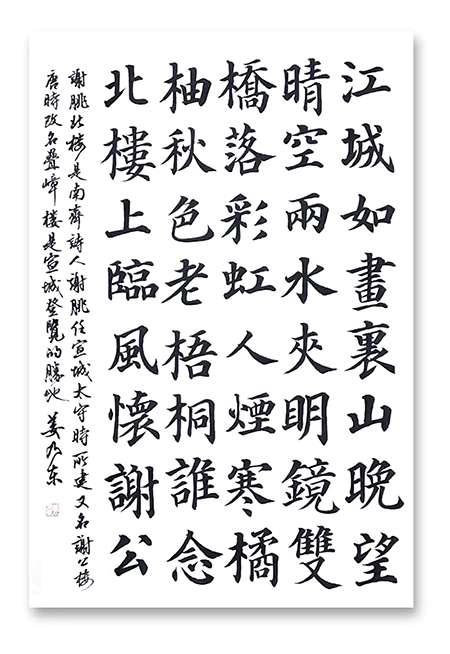 江城如畫裏山晚望
晴空兩水夾明鏡雙
橋落彩虹人煙寒橘
柚秋色老梧桐誰念
北樓上臨風懷謝公
謝朓北楼是南齊詩人謝朓任宣城太守時所建又名謝公楼
唐時改名叠嶂楼是宣城登覽的勝地 姜